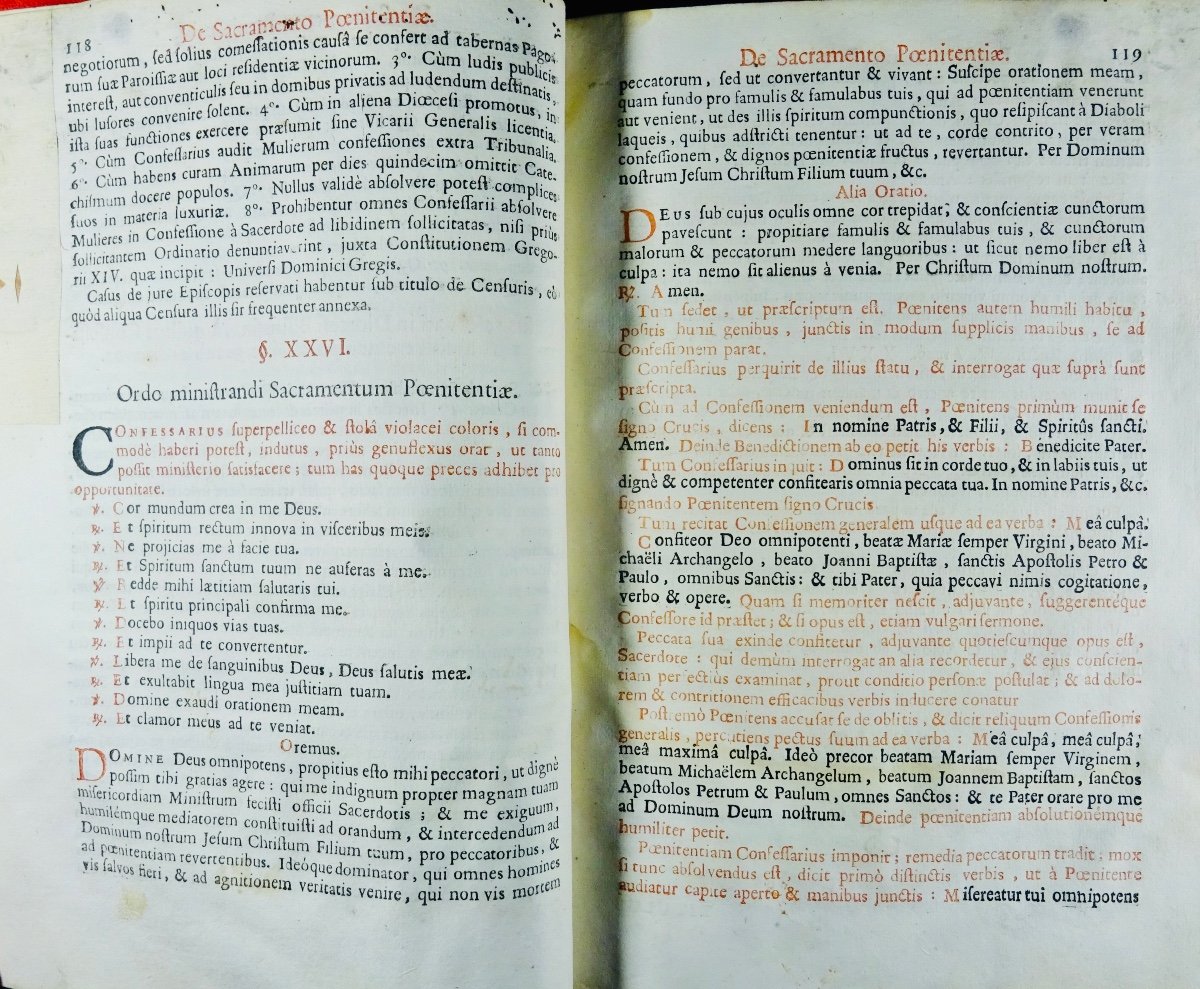 118
De Sacramento Pœnitentiæ.
negotiorum, ſeâ ſolius comeſſationis causâ ſe confert ad tabernas Pago-
rum ſuæ Paroiſſiæ aut loci reſidentiæ vicinorum. 3°. Cùm ludis publicis
intereſt, aut conventiculis ſeu in domibus privatis ad ludendum deſtinatis,
ubi luſores convenire ſolent. 4°. Cùm in aliena Diœceſi promotus, in
iſta ſuas functiones exercere præſumit ſine Vicarii Generalis licentia.
5°. Cùm Confeſſarius audit Mulierum confeſſiones extra Tribunalia.
6°. Cùm habens curam Animarum per dies quindecim omittit Cate-
chiſmum docere populos. 7°. Nullus validè abſolvere poteſt complices
ſuos in materia luxuriæ. 8°. Prohibentur omnes Confeſſarii abſolvere
Mulieres in Confeſſione à Sacerdote ad libidinem ſollicitatas, niſi priùs
ſollicitantem Ordinario denuntiaverint, juxta Conſtitutionem Grego-
rii XIV. quæ incipit : Univerſi Dominici Gregis.
Caſus de jure Epiſcopis reſervati habentur ſub titulo de Cenſuris, eò
quòd aliqua Cenſura illis ſir frequenter annexa.
§. XXVI.
Ordo miniſtrandi Sacramentum Pœnitentiæ.
CONFESSARIUS ſuperpelliceo & ſtolâ violacei coloris, ſi com-
modè haberi poteſt, indutus, priùs genuflexus orat, ut tanto
poſſit miniſterio satisfacere ; tum has quoque preces adhibet pro
opportunitate.
℣. Cor mundum crea in me Deus.
℟. Et ſpiritum rectum innova in viſceribus meis.
℣. Ne projicias me à facie tua.
℟. Et Spiritum ſanctum tuum ne auferas à me.
℣. Redde mihi lætitiam ſalutaris tui.
℟. Et ſpiritu principali confirma me.
℣. Docebo iniquos vias tuas.
℟. Et impii ad te convertentur.
℣. Libera me de ſanguinibus Deus, Deus ſalutis meæ.
℟. Et exultabit lingua mea juſtitiam tuam.
℣. Domine exaudi orationem meam.
℟. Et clamor meus ad te veniat.
Oremus.
DOMINE Deus omnipotens, propitius eſto mihi peccatori, ut dignè
poſſim tibi gratias agere : qui me indignum propter magnam tuam
miſericordiam Miniſtrum feciſti officii Sacerdotis ; & me exiguum,
humilémque mediatorem conſtituiſti ad orandum, & intercedendum ad
Dominum noſtrum Jeſum Chriſtum Filium tuum, pro peccatoribus, &
ad pœnitentiam revertentibus. Ideóque dominator, qui omnes homines
vis ſalvos fieri, & ad agnitionem veritatis venire, qui non vis mortem
De Sacramento Pœnitentiæ.
119
peccatorum, ſed ut convertantur & vivant : Suſcipe orationem meam,
quam fundo pro famulis & famulabus tuis, qui ad pœnitentiam venerunt
aut venient, ut des illis ſpiritum compunctionis, quo reſipiſcant à Diaboli
laqueis, quibus adſtricti tenentur : ut ad te, corde contrito, per veram
confeſſionem, & dignos pœnitentiæ fructus, revertantur. Per Dominum
noſtrum Jeſum Chriſtum Filium tuum, &c.
Alia Oratio.
DEUS ſub cujus oculis omne cor trepidat, & conſcientiæ cunctorum
paveſcunt : propitiare famulis & famulabus tuis, & cunctorum
malorum & peccatorum medere languoribus : ut ſicut nemo liber eſt à
culpa : ita nemo ſit alienus à venia. Per Chriſtum Dominum noſtrum.
℟. Amen.
Tum ſedet, ut præſcriptum eſt. Pœnitens autem humili habitu,
poſitis humi genibus, junctis in modum ſupplicis manibus, ſe ad
Confeſſionem parat.
Confeſſarius perquirit de illius ſtatu, & interrogat quæ ſuprà ſunt
præſcripta.
Cùm ad Confeſſionem veniendum eſt, Pœnitens primùm munit ſe
ſigno Crucis, dicens : In nomine Patris, & Filii, & Spiritûs ſancti.
Amen. Deinde Benedictionem ab eo petit his verbis : Benedicite Pater.
Tum Confeſſarius inquit : Dominus ſit in corde tuo, & in labiis tuis, ut
dignè & competenter confitearis omnia peccata tua. In nomine Patris, &c.
ſignando Pœnitentem ſigno Crucis
Tum recitat Confeſſionem generalem uſque ad ea verba : Meâ culpâ.
Confiteor Deo omnipotenti, beatæ Mariæ ſemper Virgini, beato Mi-
chaëli Archangelo, beato Joanni Baptiſtæ, ſanctis Apoſtolis Petro &
Paulo, omnibus Sanctis : & tibi Pater, quia peccavi nimis cogitatione,
verbo & opere. Quam ſi memoriter neſcit, adjuvante, ſuggerentéque
Confeſſore id præſtet ; & ſi opus eſt, etiam vulgari ſermone.
Peccata ſua exinde confitetur, adjuvante quotieſcumque opus eſt,
Sacerdote : qui demùm interrogat an alia recordetur, & ejus conſcien-
tiam perfectiùs examinat, prout conditio perſonæ poſtulat ; & ad dolo-
rem & contritionem efficacibus verbis inducere conatur
Poſtremò Pœnitens accuſat ſe de oblitis, & dicit reliquum Confeſſionis
generalis, percutiens pectus ſuum ad ea verba : Meâ culpâ, meâ culpâ,
meâ maximâ culpâ. Ideò precor beatam Mariam ſemper Virginem,
beatum Michaëlem Archangelum, beatum Joannem Baptiſtam, ſanctos
Apoſtolos Petrum & Paulum, omnes Sanctos : & te Pater orare pro me
ad Dominum Deum noſtrum. Deinde pœnitentiam abſolutionémque
humiliter petit.
Pœnitentiam Confeſſarius imponit ; remedia peccatorum tradit : mox
ſi tunc abſolvendus eſt, dicit primò diſtinctis verbis, ut à Pœnitente
audiatur capite aperto & manibus junctis : Miſereatur tui omnipotens